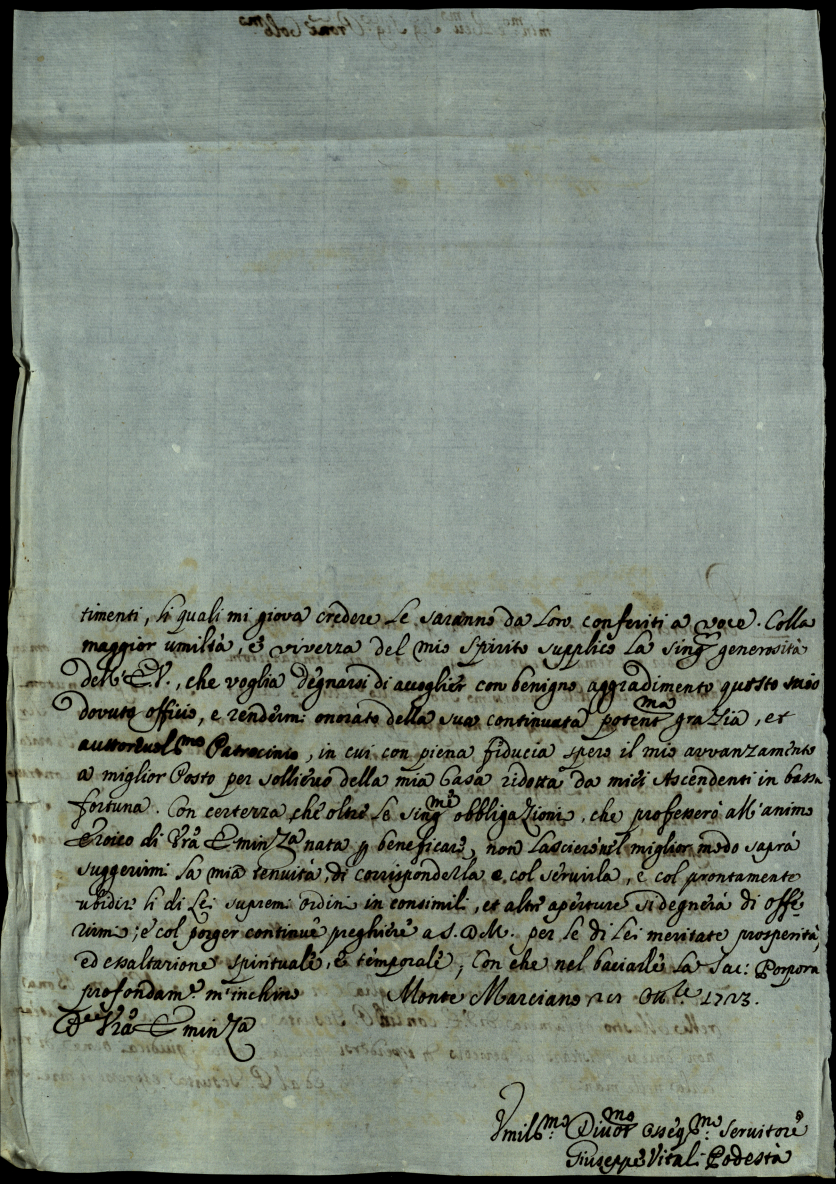 timenti, li quali mi giova credere le saranno da Loro conferiti a voce. Colla
maggior umiltà, e viverza del mio Spirito supplico La sing.ma generosità
dell'E.V., che voglia degnarsi di accoglier con benigno aggradimento questo mio
dovuto officio, e rendermi onorato della sua continuata potent.ma grazia, et
auttorevol.mo Patrocinio, in cui con piena fiducia spero il mio avvanzamento
a miglior Posto per sollievo della mia Casa ridotta da miei Ascendenti in bassa
fortuna. Con certezza, che oltre le sing.me obbligazioni, che professerò all'animo
Eroico di Vra Eminza nata p beneficare, non lascierò nel miglior modo saprà
suggerirmi la mia tenuità, di corrisponderla e col servirla, e col prontamente
ubidire li di Lei supremi ordini in consimili, et altre aperture si degnerà di offe-
rirmi; e col porger continue preghiere a S.D.M. per le di Lei meritate prosperità,
ed essaltazione spirituale, e temporale; Con che nel baciarle la Sac: Porpora
profondam.e m'inchino Monte Marciano Ott.le 1723.
D Vra Eminza
Umil.mo Divot.mo osseq.mo Servitore
Giuseppe Vitali Podestà